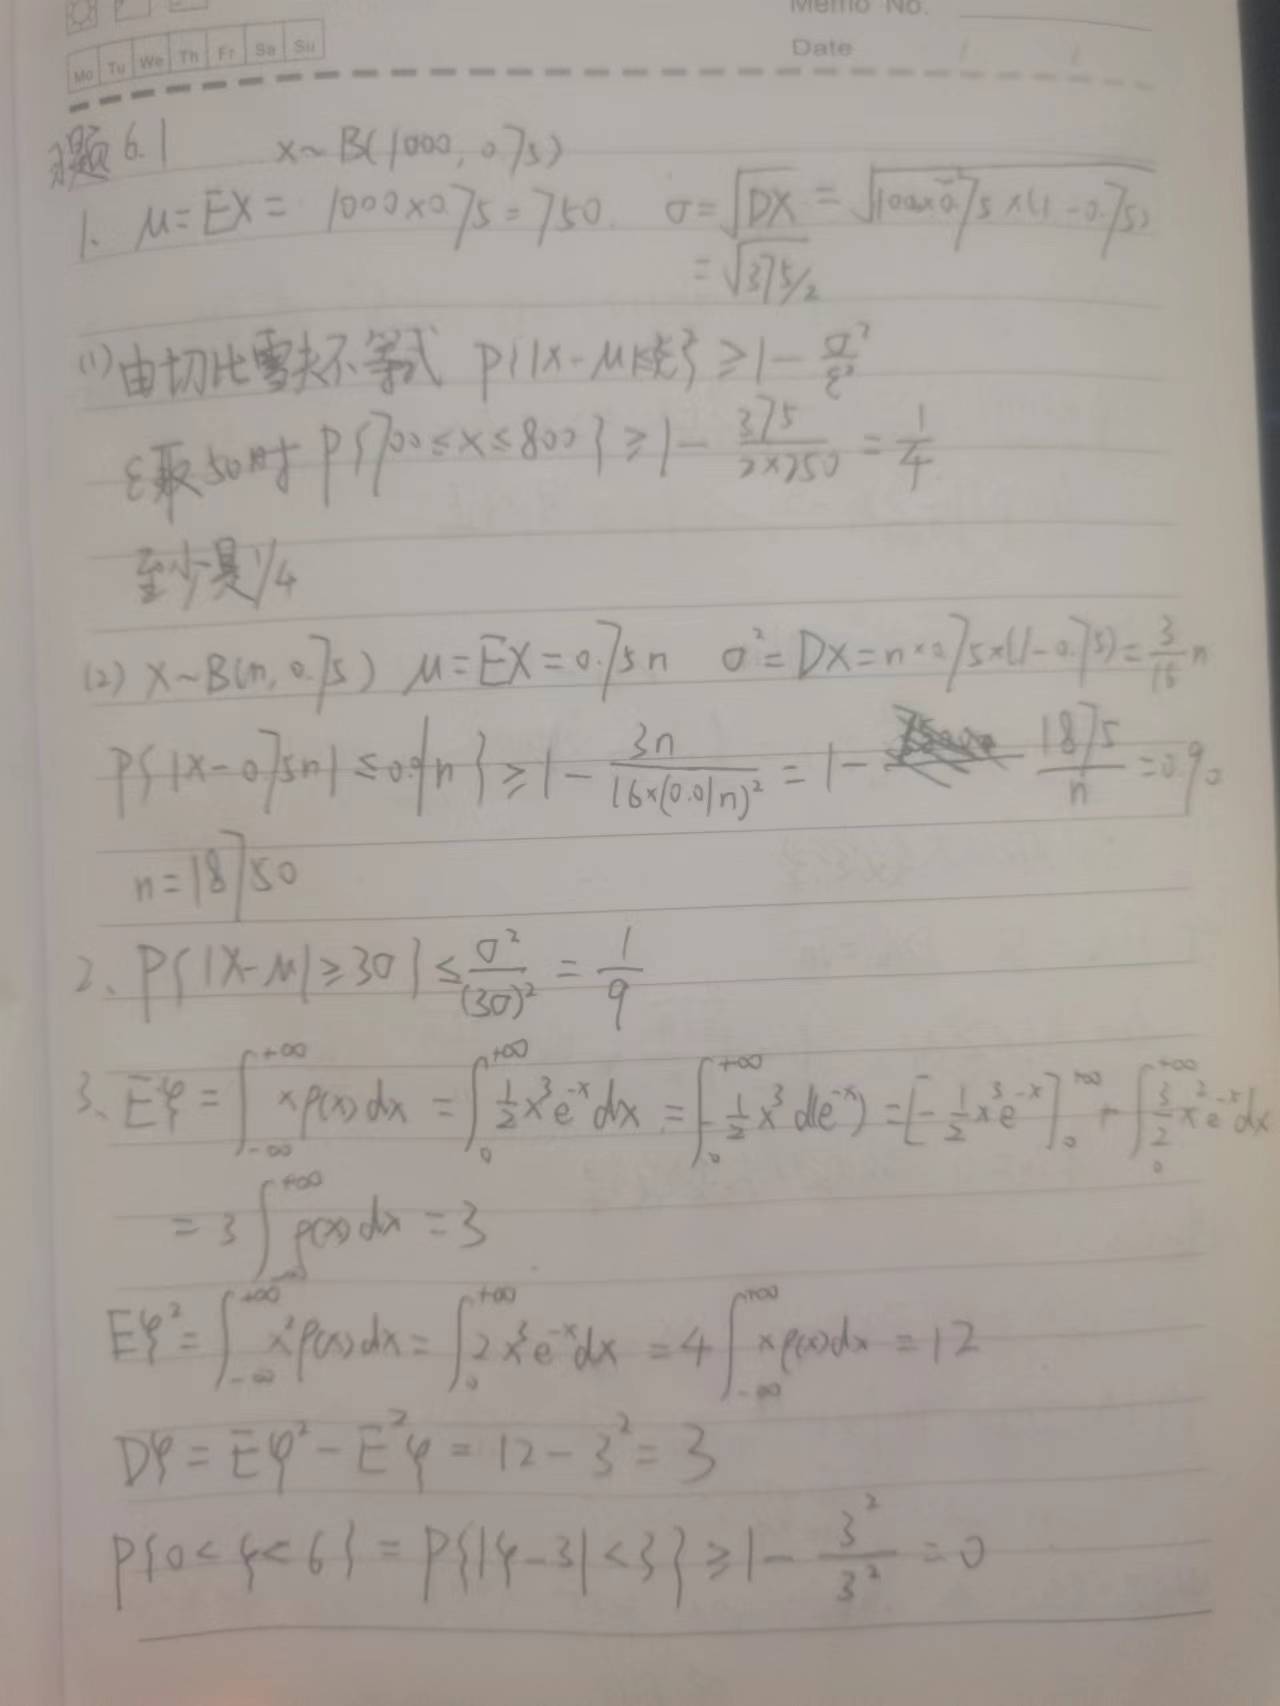 Memo No.
Mo Tu We Th Fr Sa Su
Date / /
习题6.1 X~B(1000, 0.75)
1. μ=EX= 1000×0.75=750. σ=√DX = √1000×0.75×(1-0.75)
=√375/2
(1)由切比雪夫不等式 P{|X-μ|≤ε} ≥1- σ²/ε²
ε取50时 P{700≤X≤800} ≥1- 375/2×250 = 1/4
至少是1/4
(2) X~B(n, 0.75) μ=EX=0.75n σ²=DX=n×0.75×(1-0.75)=3/16 n
P{|X-0.75n|≤0.01n} ≥1- 3n/16×(0.01n)² =1- 1875/n =0.90
n=18750
2、P{|X-μ|≥3σ} ≤ σ²/(3σ)² = 1/9
3、Eξ = ∫_{-∞}^{+∞} xρ(x)dx = ∫_0^{+∞} 1/2 x³e^{-x}dx = ∫_0^{+∞} -1/2 x³ d(e^{-x}) = [-1/2 x³e^{-x}]_0^{+∞} + ∫_0^{+∞} 3/2 x²e^{-x}dx
= 3∫_{-∞}^{+∞} ρ(x)dx = 3
Eξ² = ∫_{-∞}^{+∞} x²ρ(x)dx = ∫_0^{+∞} 2x³e^{-x}dx = 4∫_{-∞}^{+∞} xρ(x)dx = 12
Dξ = Eξ² - E²ξ = 12 - 3² = 3
P{0<ξ<6} = P{|ξ-3|<3} ≥1- 3²/3² = 0